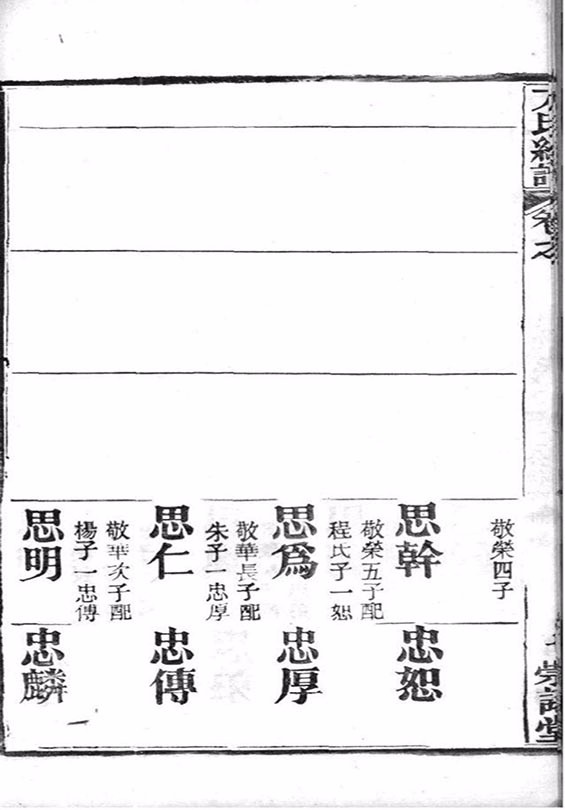 方氏
卷之
敬榮四子
思幹
敬榮五子配
程氏子一恕
思爲
敬華長子配
朱子一忠厚
思仁
敬華次子配
楊子一忠傳
思明
忠恕
忠厚
忠傳
忠麟